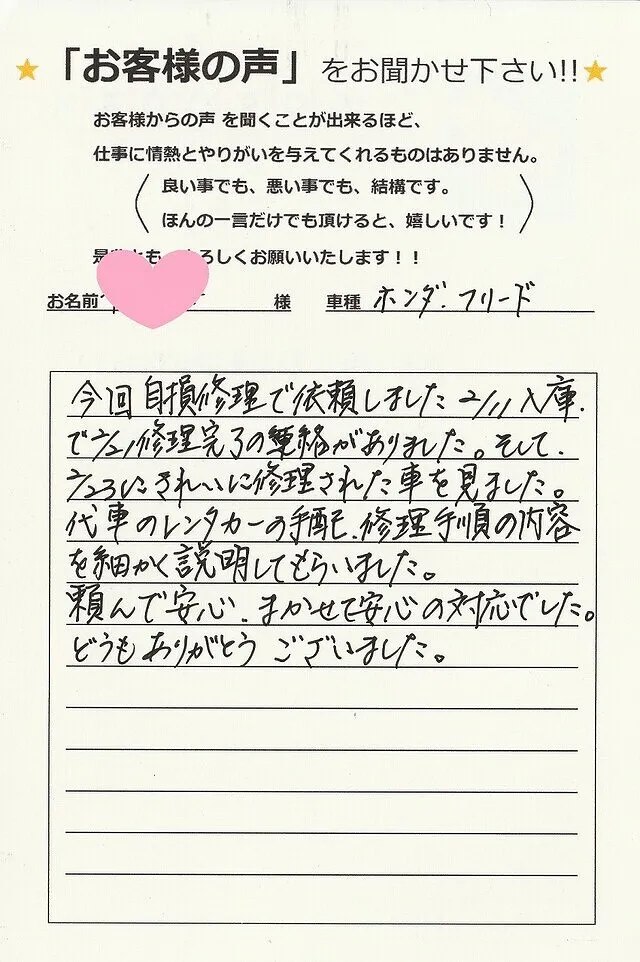 「お客様の声」をお聞かせ下さい!!
お客様からの声 を聞くことが出来るほど、
仕事に情熱とやりがいを与えてくれるものはありません。
良い事でも、悪い事でも、結構です。
ほんの一言だけでも頂けると、嬉しいです！
是 とも ろしくお願いいたします！！
お名前 様 車種 ホンダ. フリード
今回自損修理で依頼しました 2/11 入庫.
で2/21修理完了の連絡がありました。そして.
2/23にきれいに修理された車を見ました。
代車のレンタカーの手配、修理手順の内容
を細かく説明してもらいました。
頼んで安心、まかせて安心の対応でした。
どうもありがとうございました。